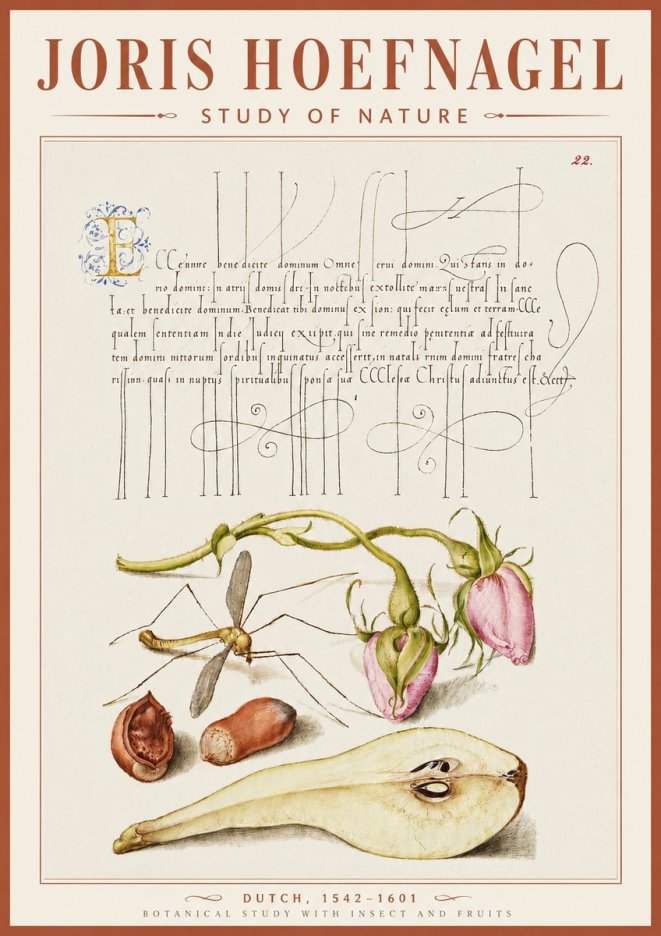 JORIS HOEFNAGEL
STUDY OF NATURE
22.
benedicite dominum Omne serui domini. Qui stans in do-
domini: In atrijs domus In noctibus extollite manus uestras In sanc
ta: et benedicite dominum. Benedicat tibi dominus ex sion: qui fecit cęlum et terram. CCCe
qualem sententiam In die Iudicij excipit, qui sine remedio penitentia ad festiuita
tem domini sordibus inquinatus accesserit, in natali domini fratres cha
quasi in nuptijs spiritualibus sponsa sua CCCle Christus adiunctus est. &cet
DUTCH, 1542–1601
BOTANICAL STUDY WITH INSECT AND FRUITS